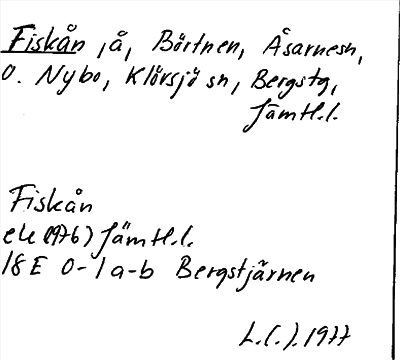 Fiskån, å, Börtnen, Åsarnesn,
O. Nybo, Klövsjö sn, Bergstg,
Jämtl.l.
Fiskån
ek (1976) Jämtl.l.
18E 0-1 a-b Bergstjärnen
L.C.J. 1977